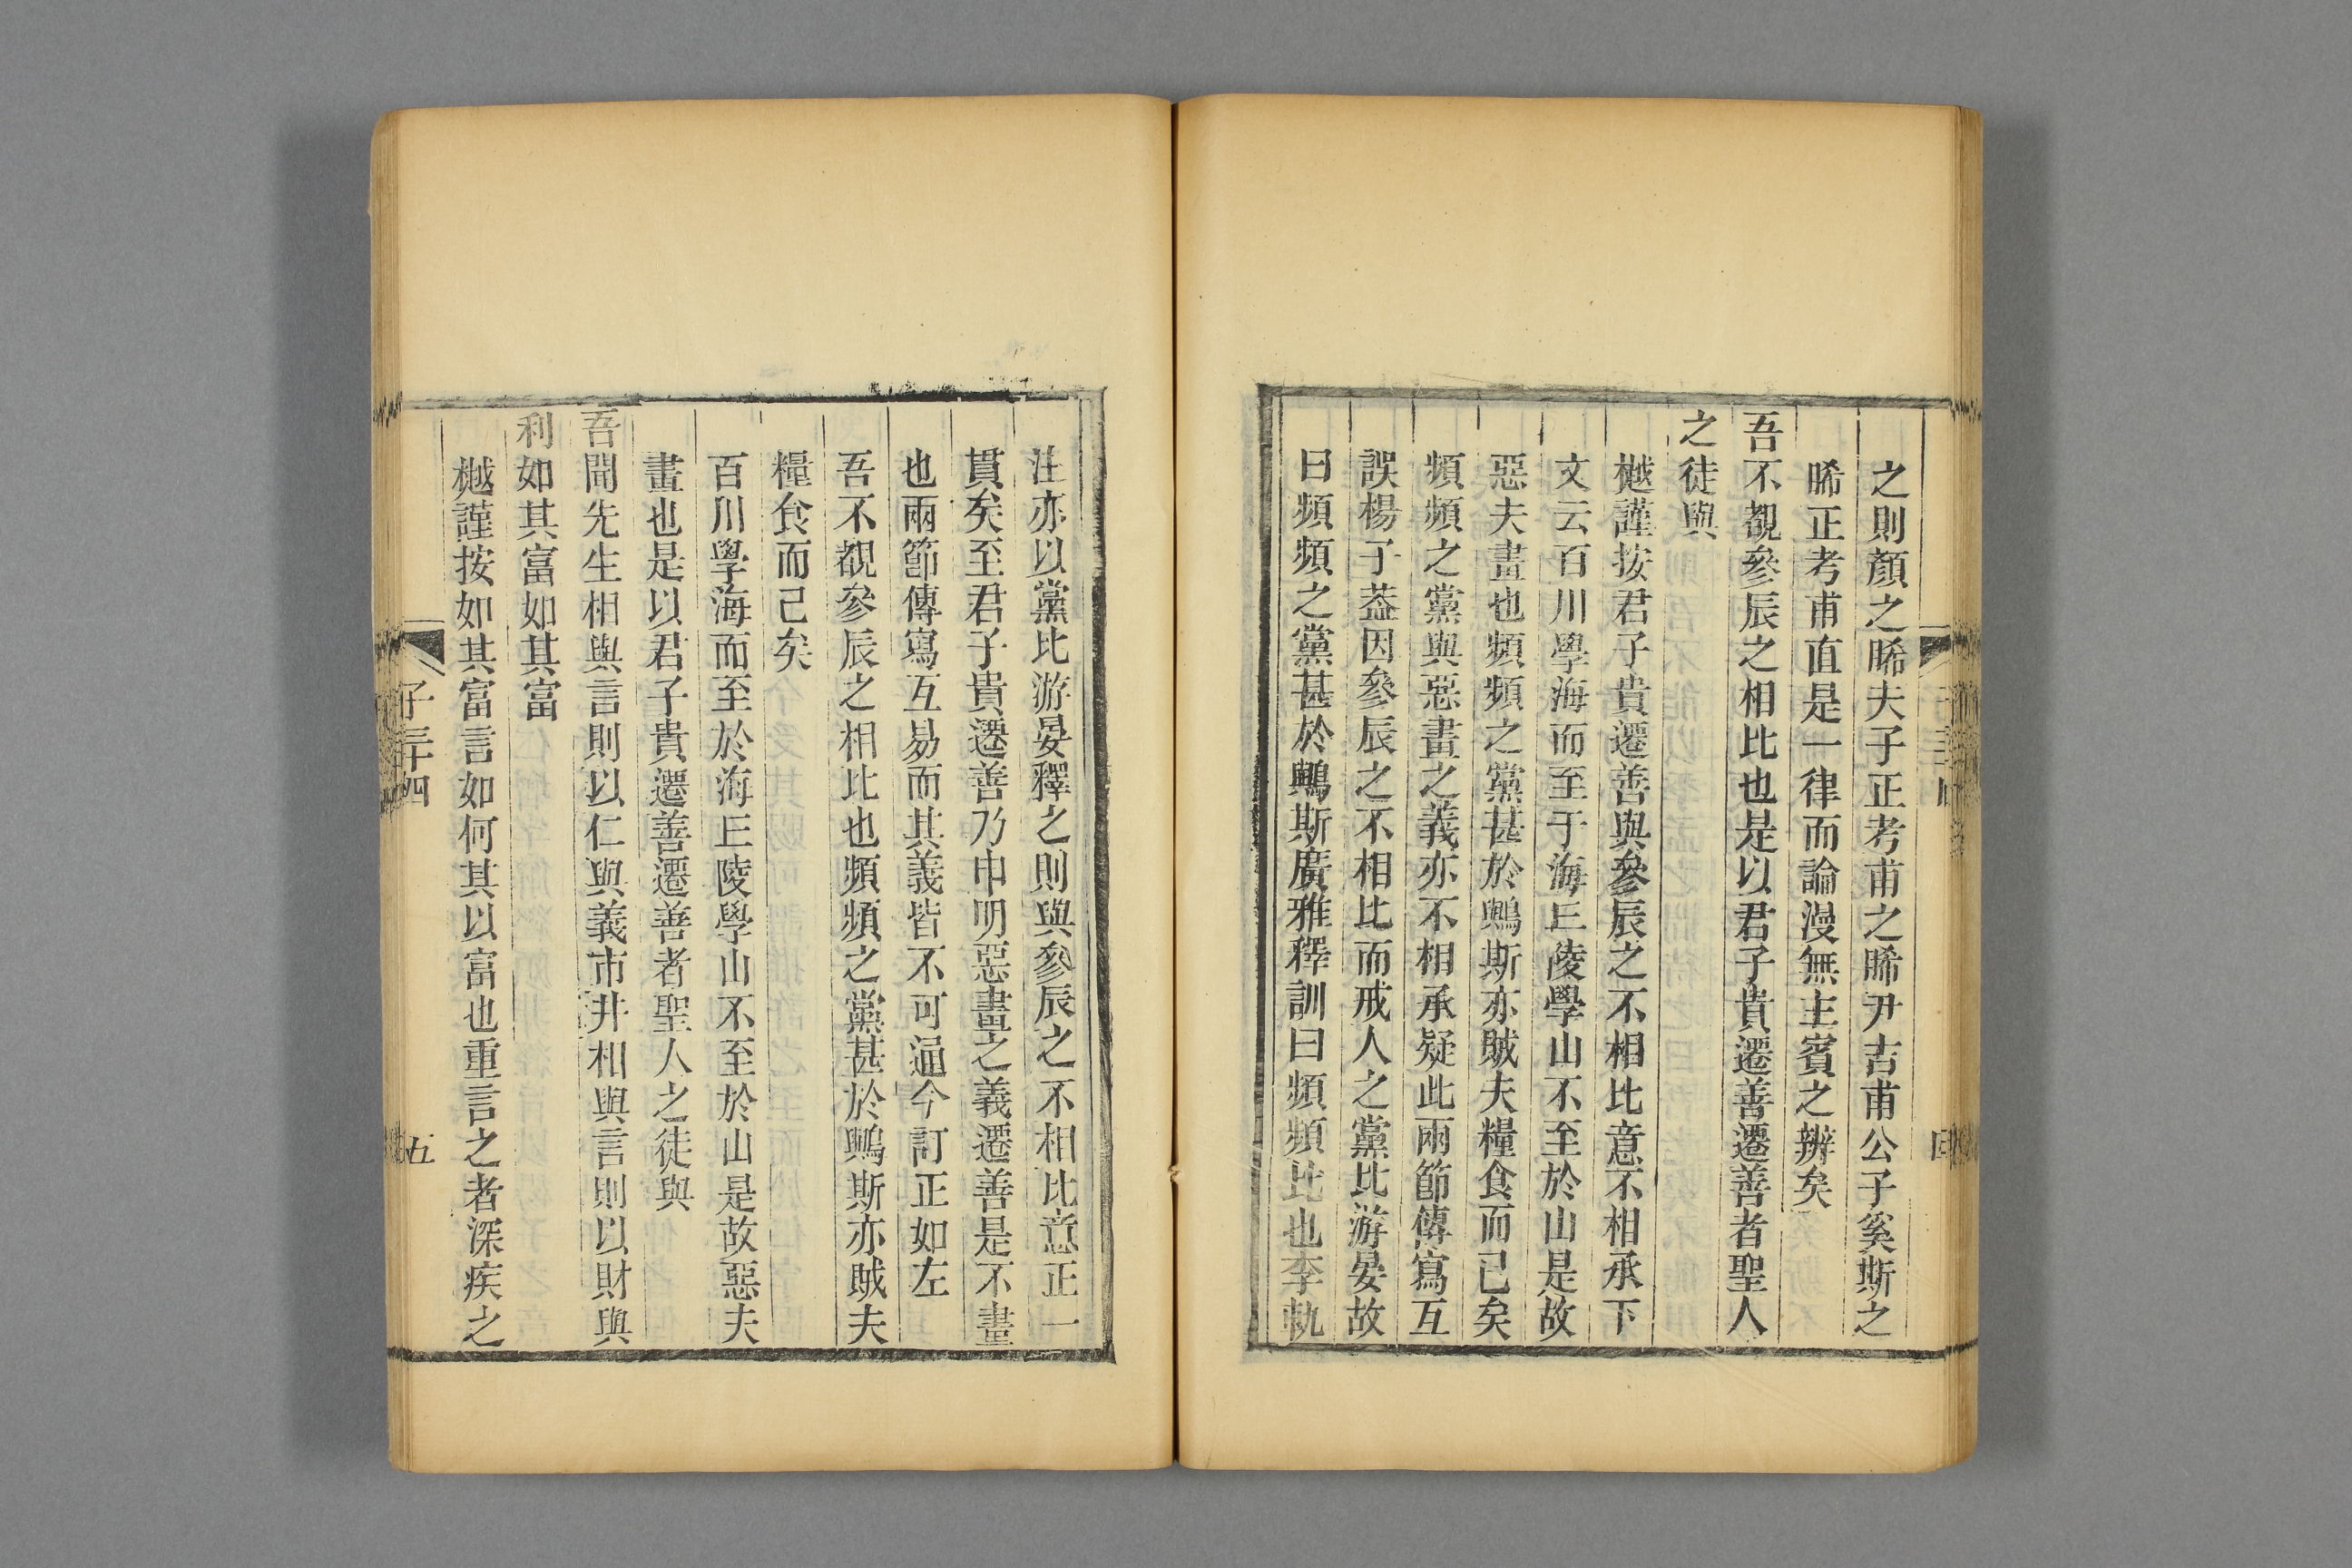 之則顏之睎夫子正考甫之睎尹吉甫公子奚斯之
睎正考甫直是一律而論漫無主賓之辨矣
吾不覩參辰之相比也是以君子貴遷善遷善者聖人
之徒與
樾謹按君子貴遷善與參辰之不相比意不相承下
文云百川學海而至于海丘陵學山不至於山是故
惡夫畫也頻頻之黨甚於鷽斯亦賊夫糧食而已矣
頻頻之黨與惡畫之義亦不相承疑此兩節傳寫互
誤楊子葢因參辰之不相比而戒人之黨比游晏故
曰頻頻之黨甚於鷽斯廣雅釋訓曰頻頻比也李軌
注亦以黨比游晏釋之則與參辰之不相比意正一
貫矣至君子貴遷善乃申明惡畫之義遷善是不畫
也兩節傳寫互易而其義皆不可通今訂正如左
吾不覩參辰之相比也頻頻之黨甚於鷽斯亦賊夫
糧食而已矣
百川學海而至於海丘陵學山不至於山是故惡夫
畫也是以君子貴遷善遷善者聖人之徒與
吾聞先生相與言則以仁與義市井相與言則以財與
利如其富如其富
樾謹按如其富言如何其以富也重言之者深疾之
子三十四
五